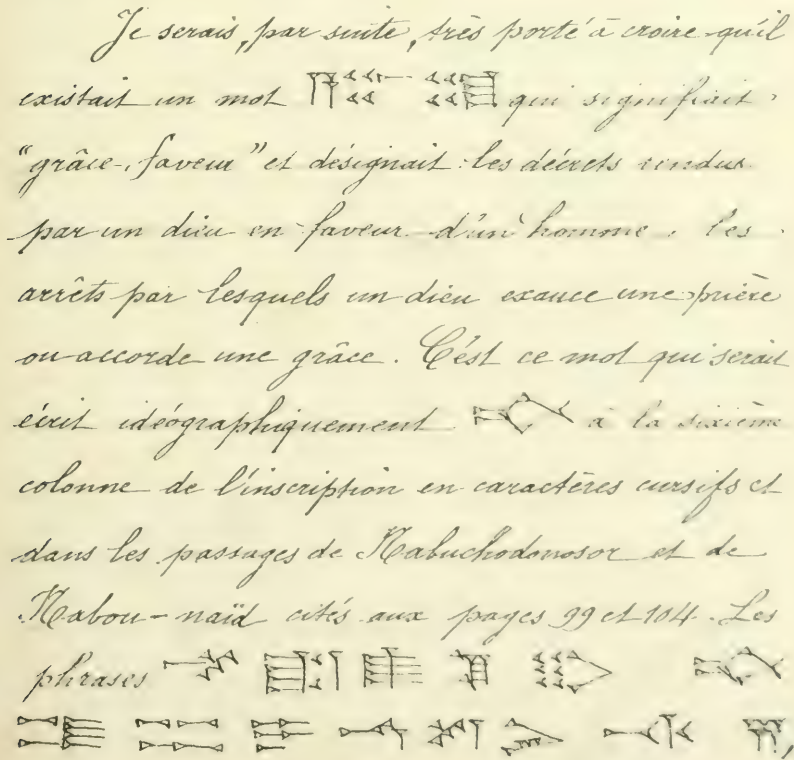 Je serais, par suite, très porté à croire qu'il
existait un mot qui signifiait
"grâce, faveur" et désignait les décrets rendus
par un dieu en faveur d'un homme, les
arrêts par lesquels un dieu exauce une prière
ou accorde une grâce. C'est ce mot qui serait
écrit idéographiquement à la sixième
colonne de l'inscription en caractères cursifs et
dans les passages de Nabuchodonosor et de
Nabou-naïd cités aux pages 99 et 104. Les
phrases